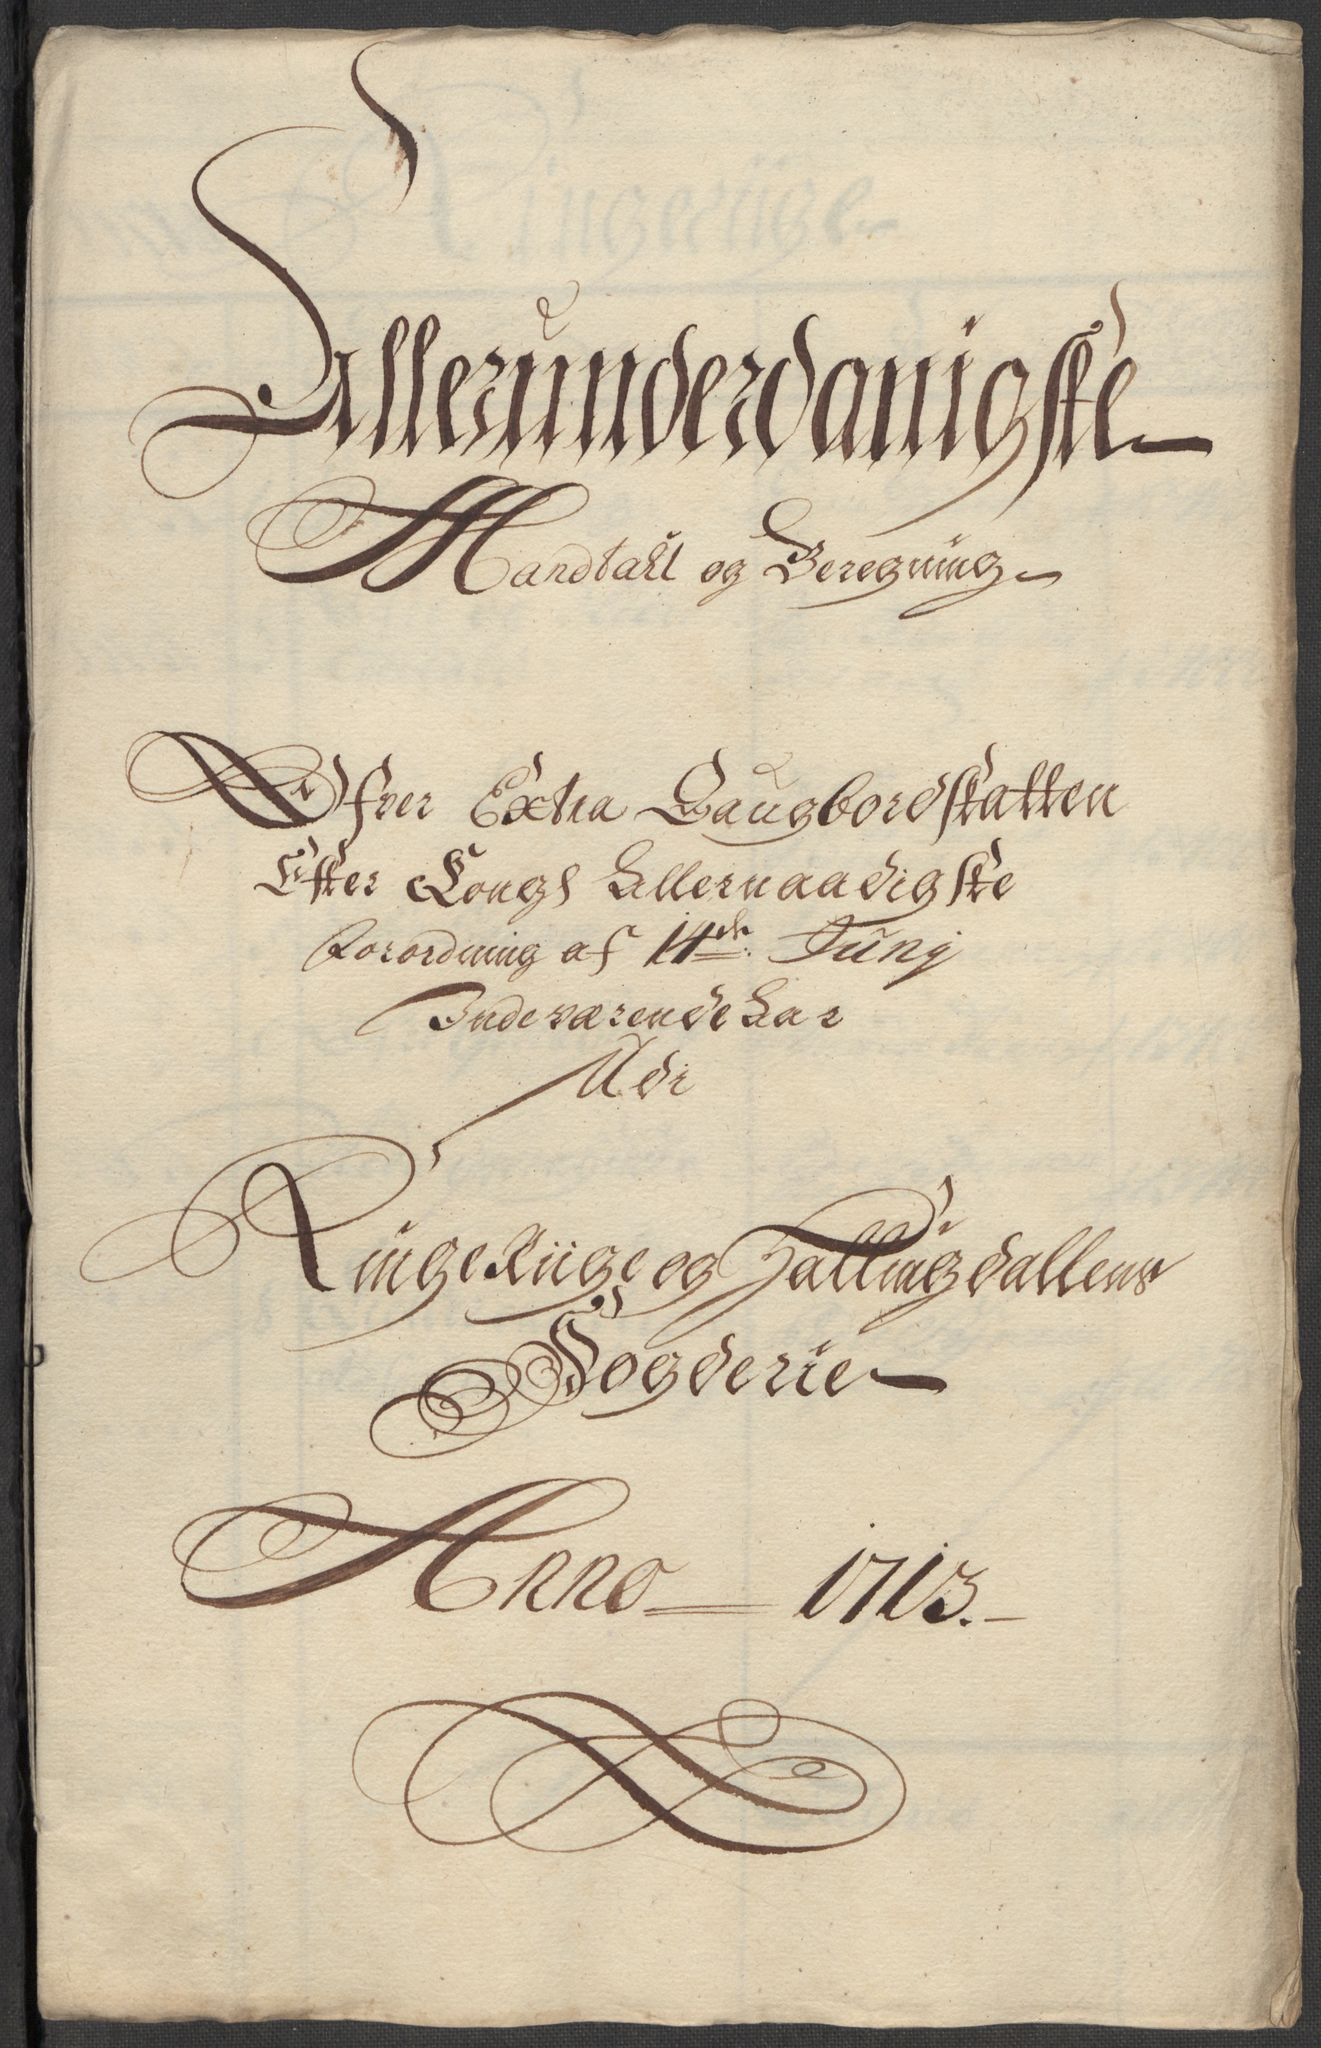 Allerunderdanigste
Mandtall og Beregning
Ofver Extra Saugbordskatten
Efter Kongl Allernaadigste
Forordning af 14de Junij
Indeværende Aar
Udi
RingeRiige og Hallingdallens
Fogderie
Anno 1713.